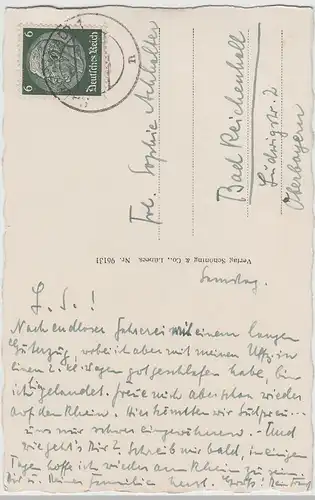 6
Deutsches Reich
6
Frl. Sophie
Bad Reichenhall
Ludwigstr. 2
Oberbayern
Verlag Schöning & Co., Lübeck, Nr. 96131
Samstag.
L. S.!
Nach endloser Fahrerei mit einem langen
Güterzug, wobei ich aber mit meinem Uffz. in
einem 2. Kl. Wagen gut geschlafen habe, bin
ich gelandet. Freue mich aber schon wieder
auf den Rhein. Hier könnten wir
uns nur schwer eingewöhnen. Und
wie geht's Dir? Schreib mir bald, in einigen
Tagen hoffe ich wieder am Rhein zu sein.
Dir u. Deiner Familie herzl. Grüße! Dein Franz